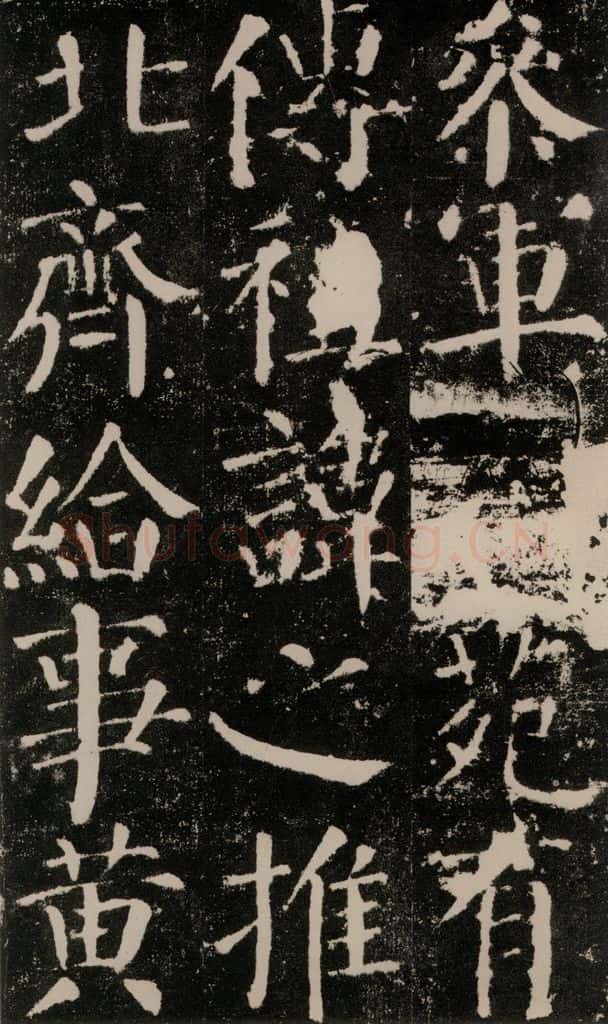 叅軍苑有
傳祖諱之推
北齊給事黃
Shufawang.CN